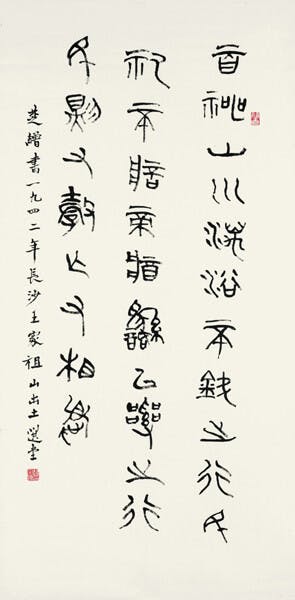 百神山川澫浴不欽之行民
祀不帝繇以之行
民則又穀亡又相
楚繒書一九四二年長沙王家祖山出土選堂